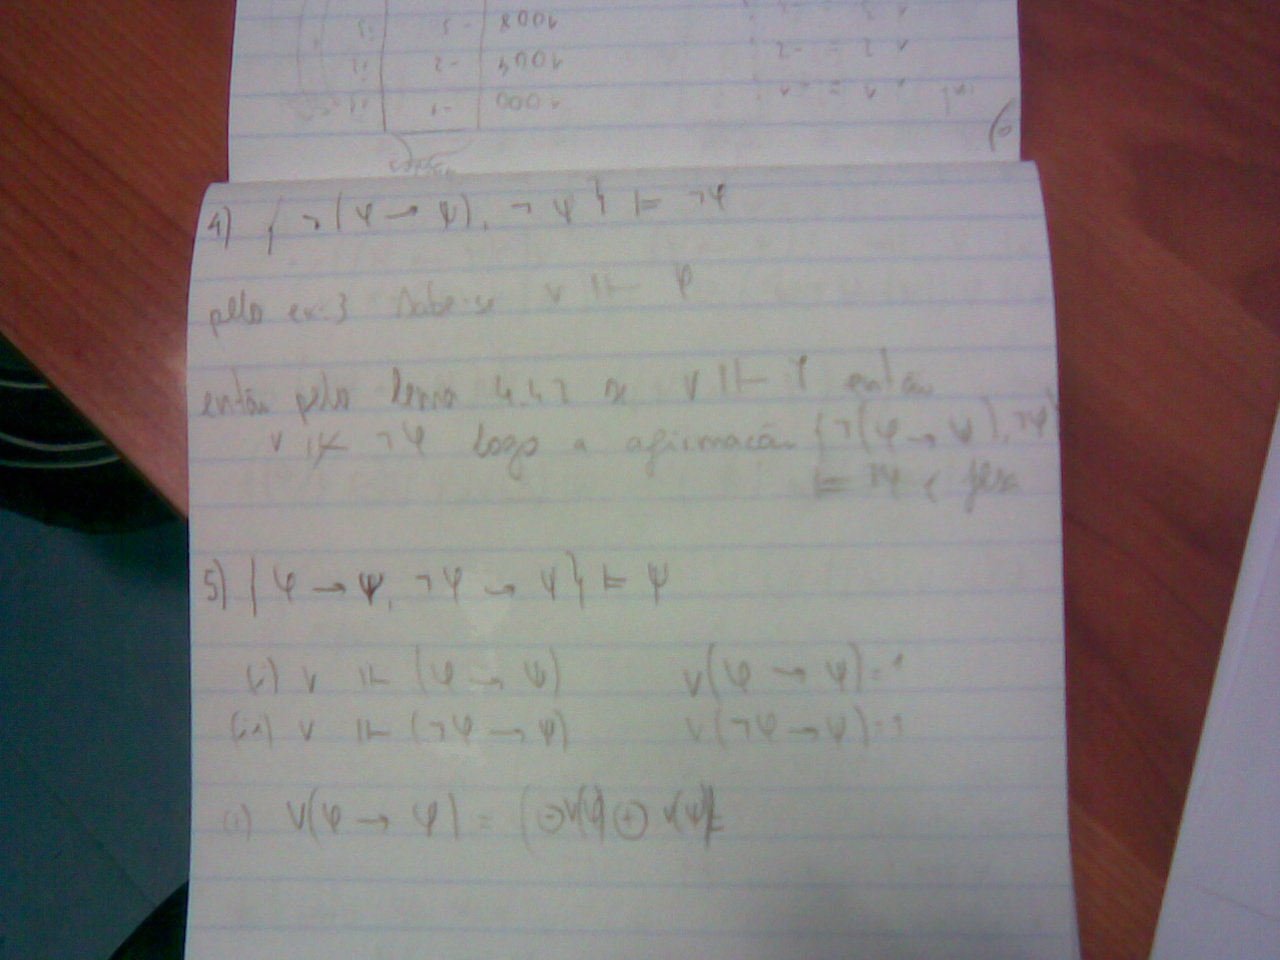 1008 -3 i3
1 2 = -2;
1004 -2 i2
1 1 = -1;
1000 -1
4) { ¬(φ → ψ), ¬ψ } ⊨ ¬φ
pelo ex. 3 sabe-se v ⊩ φ
então pelo lema 4.42 se v ⊩ φ então
v ⊮ ¬φ logo a afirmação {¬(φ → ψ), ¬ψ}
⊨ ¬φ é falsa
5) { φ → ψ, ¬φ → ψ } ⊨ ψ
(i) v ⊩ (φ → ψ) v(φ → ψ) = 1
(ii) v ⊩ (¬φ → ψ) v(¬φ → ψ) = 1
(i) v(φ → ψ) = (⊖v(φ) ⊕ v(ψ))=